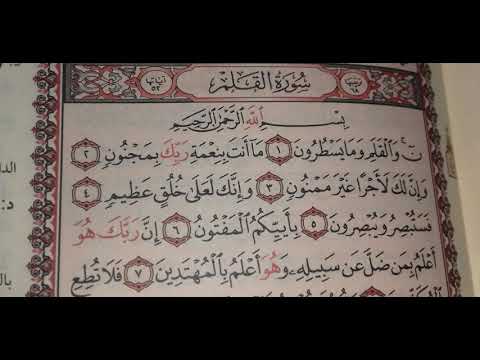 ترتيبها ٦٨ سُورَةُ القَلَمِ آياتها ٥٢
بِسْمِ اللَّهِ الرَّحْمَٰنِ الرَّحِيمِ
نٓ ۚ وَالْقَلَمِ وَمَا يَسْطُرُونَ ١ مَا أَنتَ بِنِعْمَةِ رَبِّكَ بِمَجْنُونٍ ٢
وَإِنَّ لَكَ لَأَجْرًا غَيْرَ مَمْنُونٍ ٣ وَإِنَّكَ لَعَلَىٰ خُلُقٍ عَظِيمٍ ٤
فَسَتُبْصِرُ وَيُبْصِرُونَ ٥ بِأَييِّكُمُ الْمَفْتُونُ ٦ إِنَّ رَبَّكَ هُوَ
أَعْلَمُ بِمَن ضَلَّ عَن سَبِيلِهِ وَهُوَ أَعْلَمُ بِالْمُهْتَدِينَ ٧ فَلَا تُطِعِ